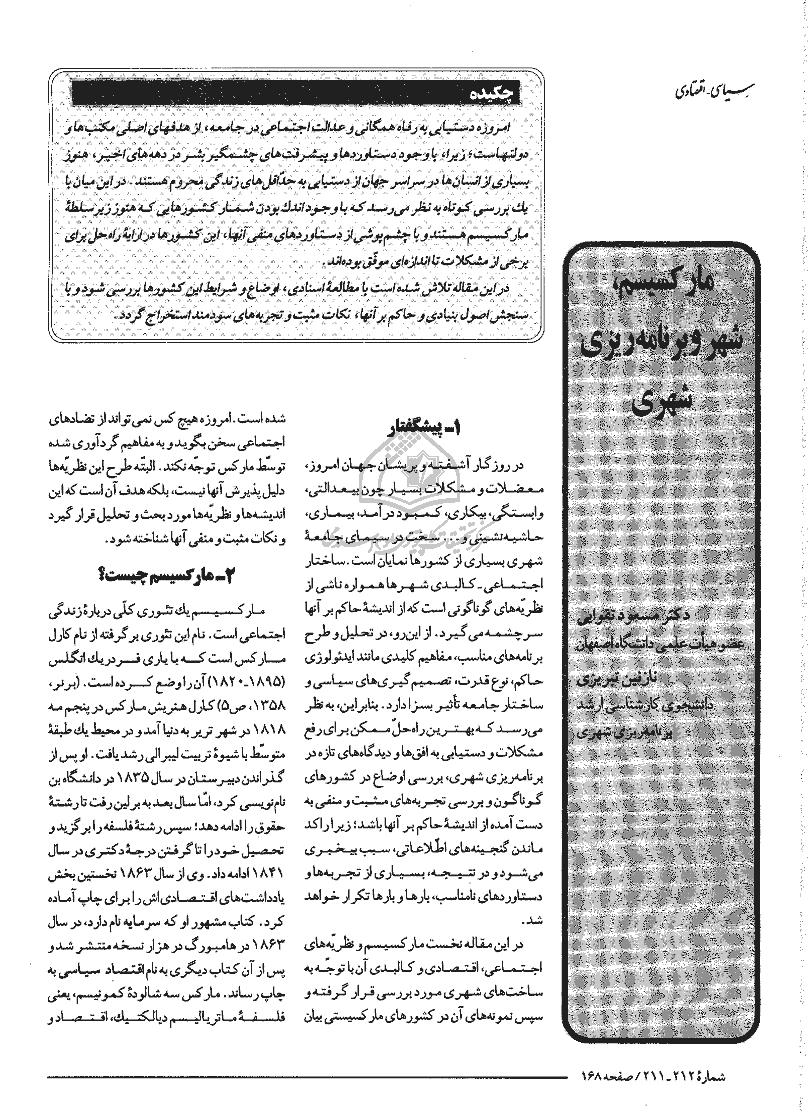 سیاسی-اقتصادی
مارکسیسم،
شهر و برنامه‌ریزی
شهری
دکتر مسعود تقوایی
عضو هیأت علمی دانشگاه اصفهان
نازنین تبریزی
دانشجوی کارشناسی ارشد
برنامه‌ریزی شهری
چکیده
امروزه دستیابی به رفاه همگانی و عدالت اجتماعی در جامعه، از هدفهای اصلی مکتب‌ها و
دولتهاست؛ زیرا، با وجود دستاوردها و پیشرفت‌های چشمگیر بشر در دهه‌های اخیر، هنوز
بسیاری از انسان‌ها در سراسر جهان از دستیابی به حدّاقل‌های زندگی محروم هستند. در این میان با
یك بررسی کوتاه به نظر می‌رسد که با وجود اندك بودن شمار کشورهایی که هنوز زیر سلطهٔ
مارکسیسم هستند و با چشم‌پوشی از دستاوردهای منفی آنها، این کشورها در ارایهٔ راه‌حل برای
برخی از مشکلات تا اندازه‌ای موفّق بوده‌اند.
در این مقاله تلاش شده است با مطالعهٔ اسنادی، اوضاع و شرایط این کشورها بررسی شود و با
سنجش اصول بنیادی و حاکم بر آنها، نکات مثبت و تجربه‌های سودمند استخراج گردد.
۱ـ پیشگفتار
در روزگار آشفته و پریشان جهان امروز،
معضلات و مشکلات بسیار چون بیعدالتی،
وابستگی، بیکاری، کمبود درآمد، بیماری،
حاشیه‌نشینی و... سخت در سیمای جامعهٔ
شهری بسیاری از کشورها نمایان است. ساختار
اجتماعی ـ کالبدی شهرها همواره ناشی از
نظریّه‌های گوناگونی است که از اندیشهٔ حاکم بر آنها
سرچشمه می‌گیرد. از این‌رو، در تحلیل و طرح
برنامه‌های مناسب، مفاهیم کلیدی مانند ایدئولوژی
حاکم، نوع قدرت، تصمیم‌گیری‌های سیاسی و
ساختار جامعه تأثیر بسزا دارد. بنابراین، به نظر
می‌رسد که بهترین راه‌حلّ ممکن برای رفع
مشکلات و دستیابی به افق‌ها و دیدگاه‌های تازه در
برنامه‌ریزی شهری، بررسی اوضاع در کشورهای
گوناگون و بررسی تجربه‌های مثبت و منفی به
دست آمده از اندیشهٔ حاکم بر آنها باشد؛ زیرا راکد
ماندن گنجینه‌های اطّلاعاتی، سبب بیخبری
می‌شود و در نتیجه، بسیاری از تجربه‌ها و
دستاوردهای نامناسب، بارها و بارها تکرار خواهد
شد.
در این مقاله نخست مارکسیسم و نظریّه‌های
اجتماعی، اقتصادی و کالبدی آن با توجّه به
ساخت‌های شهری مورد بررسی قرار گرفته و
سپس نمونه‌های آن در کشورهای مارکسیستی بیان
شده است. امروزه هیچ کس نمی‌تواند از تضادهای
اجتماعی سخن بگوید و به مفاهیم گردآوری شده
توسّط مارکس توجّه نکند. البتّه طرح این نظریّه‌ها
دلیل پذیرش آنها نیست، بلکه هدف آن است که این
اندیشه‌ها و نظریّه‌ها مورد بحث و تحلیل قرار گیرد
و نکات مثبت و منفی آنها شناخته شود.
۲ـ مارکسیسم چیست؟
مارکسیسم یك تئوری کلّی دربارهٔ زندگی
اجتماعی است. نام این تئوری برگرفته از نام کارل
مارکس است که با یاری فردریك انگلس
(۱۸۹۵ـ۱۸۲۰) آن را وضع کرده است. (برنر،
۱۳۵۸، ص۵) کارل هنریش مارکس در پنجم مه
۱۸۱۸ در شهر تریر به دنیا آمد و در محیط یك طبقهٔ
متوسّط با شیوهٔ تربیت لیبرالی رشد یافت. او پس از
گذراندن دبیرستان در سال ۱۸۳۵ در دانشگاه بن
نام‌نویسی کرد، امّا سال بعد به برلین رفت تا رشتهٔ
حقوق را ادامه دهد؛ سپس رشتهٔ فلسفه را برگزید و
تحصیل خود را تا گرفتن درجهٔ دکتری در سال
۱۸۴۱ ادامه داد. وی از سال ۱۸۶۳ نخستین بخش
یادداشت‌های اقتصادی‌اش را برای چاپ آماده
کرد. کتاب مشهور او که سرمایه نام دارد، در سال
۱۸۶۳ در هامبورگ در هزار نسخه منتشر شد و
پس از آن کتاب دیگری به نام اقتصاد سیاسی به
چاپ رساند. مارکس سه شالودهٔ کمونیسم، یعنی
فلسفهٔ ماتریالیسم دیالکتیك، اقتصاد و
شمارهٔ ۲۱۲ـ۲۱۱ / صفحه ۱۶۸